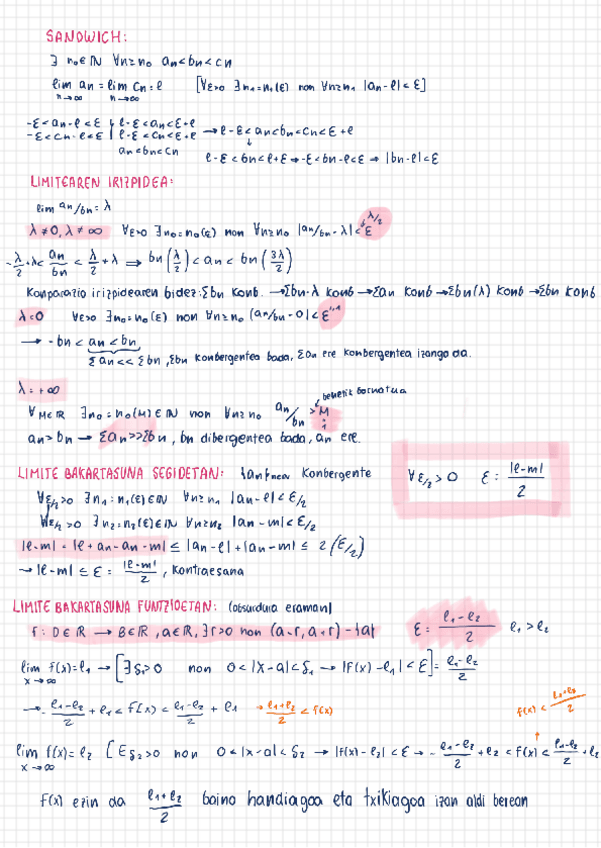 SANDWICH:
∃ n₀∈ℕ ∀n≥n₀ an<bn<cn
lim an = lim cn = ℓ [∀ε>0 ∃n₁=n₁(ε) non ∀n≥n₁ |an-ℓ|<ε]
n→∞ n→∞
-ε<an-ℓ<ε | ℓ-ε<an<ε+ℓ
-ε<cn-ℓ<ε | ℓ-ε<cn<ε+ℓ → ℓ-ε<an<bn<cn<ε+ℓ
an<bn<cn ↓
ℓ-ε<bn<ℓ+ε → -ε<bn-ℓ<ε → |bn-ℓ|<ε
LIMITEAREN IRIZPIDEA:
lim an/bn = λ
λ≠0, λ≠∞ ∀ε>0 ∃n₀=n₀(ε) non ∀n≥n₀ |an/bn-λ|<ε λ/2
-λ/2+λ< an/bn < λ/2+λ ⇒ bn(λ/2)<an<bn(3λ/2)
Konparazio irizpidearen bidez: Σbn konb. → Σbn·λ konb → Σan konb → Σbn(λ) konb → Σbn konb
λ=0 ∀ε>0 ∃n₀=n₀(ε) non ∀n≥n₀ |an/bn-0|<ε
→ -bn < an < bn
Σan << Σbn, Σbn konbergentea bada, Σan ere konbergentea izango da.
λ=+∞
∀M∈ℝ ∃n₀=n₀(M)∈ℕ non ∀n≥n₀ an/bn >M behetik bornatua
1
an>bn → Σan>>Σbn, bn dibergentea bada, an ere.
LIMITE BAKARTASUNA SEGIDETAN: {an}n∈ℕ konbergente
∀ε/2>0 ε= |ℓ-m|/2
∀ε/2>0 ∃n₁=n₁(ε)∈ℕ ∀n≥n₁ |an-ℓ|<ε/2
∀ε/2>0 ∃n₂=n₂(ε)∈ℕ ∀n≥n₂ |an-m|<ε/2
|ℓ-m|=|ℓ+an-an-m| ≤ |an-ℓ|+|an-m| ≤ 2(ε/2)
→ |ℓ-m| ≤ ε = |ℓ-m|/2, kontraesana
LIMITE BAKARTASUNA FUNTZIOETAN: (absurdura eraman)
f: D∈ℝ → B∈ℝ, a∈ℝ, ∃r>0 non (a-r,a+r)-{a} ε= ℓ₁-ℓ₂/2 ℓ₁>ℓ₂
lim f(x)=ℓ₁ → [∃δ₁>0 non 0<|x-a|<δ₁ → |f(x)-ℓ₁|<ε] = ℓ₁-ℓ₂/2
x→∞
→ -ℓ₁-ℓ₂/2+ℓ₁<f(x)<ℓ₁-ℓ₂/2+ℓ₁ → ℓ₁+ℓ₂/2<f(x)
f(x)<ℓ₁+ℓ₂/2
↑
lim f(x)=ℓ₂ [Eδ₂>0 non 0<|x-a|<δ₂ → |f(x)-ℓ₂|<ε → -ℓ₁-ℓ₂/2+ℓ₂<f(x)<ℓ₁-ℓ₂/2+ℓ₂
x→∞
f(x) ezin da ℓ₁+ℓ₂/2 baino handiagoa eta txikiagoa izan aldi berean